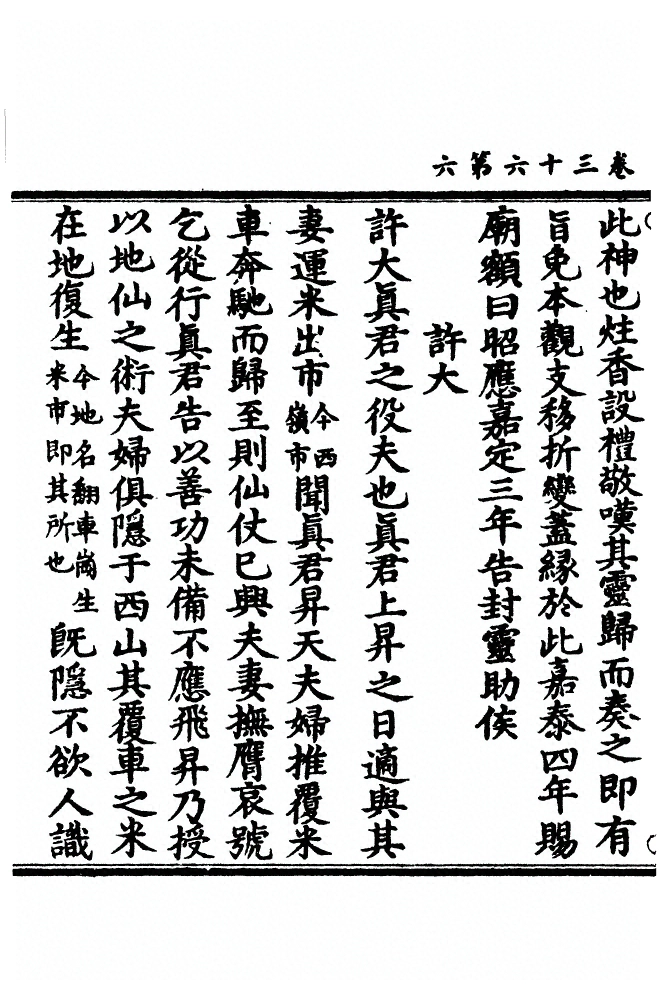 卷三十六第六
此神也炷香設禮敬嘆其靈歸而奏之即有
旨免本觀支移折變蓋緣於此嘉泰四年賜
廟額曰昭應嘉定三年告封靈助侯
許大
許大眞君之役夫也眞君上昇之日適與其
妻運米出市今西嶺市聞眞君昇天夫婦推覆米
車奔馳而歸至則仙仗已興夫妻撫膺哀號
乞從行眞君告以善功未備不應飛昇乃授
以地仙之術夫婦俱隱于西山其覆車之米
在地復生今地名翻車崗生米市即其所也旣隱不欲人識